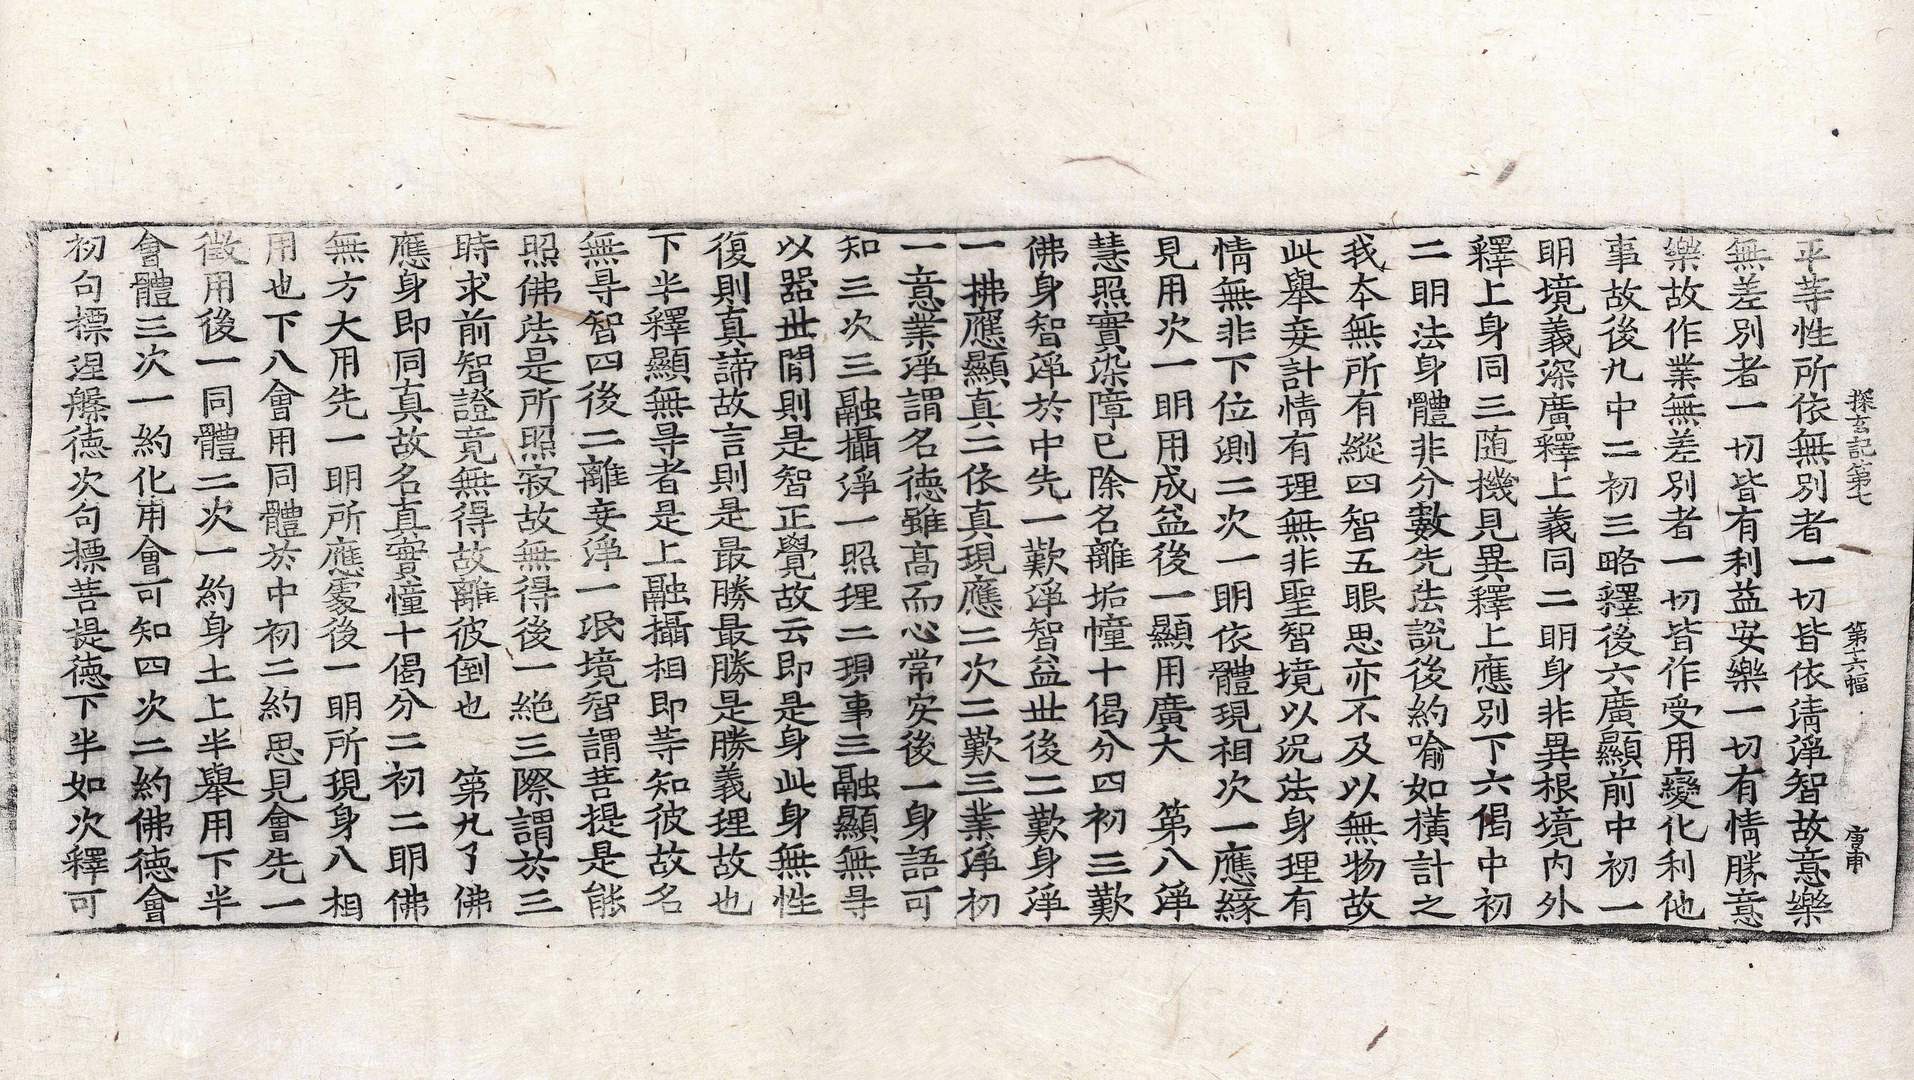 平等性所依無別者一切皆依清淨智故意樂
探玄記第七 第六幅
無差別者一切皆有利益安樂一切有情勝意
樂故作業無差別者一切皆作受用變化利他
事故後九中二初三略釋後六廣顯前中初一
明境義深廣釋上義同二明身非異根境內外
釋上身同三随機見異釋上應別下六偈中初
二明法身體非分數先法說後約喻如橫計之
我本無所有縱四智五眼思亦不及以無物故
此舉妄計情有理無非聖智境以況法身理有
情無非下位測二次一明依體現相次一應緣
見用次一明用成益後一顯用廣大 第八淨
慧照實染障已除名離垢幢十偈分四初三歎
佛身智淨於中先一歎淨智益丗後二歎身淨
一拂應顯真二依真現應二次二歎三業淨初
一意業淨謂名德雖高而心常安後一身語可
知三次三融攝淨一照理二現事三融顯無㝵
以器丗間則是智正覺故云即是身此身無性
復則真諦故言則是最勝最勝是勝義理故也
下半釋顯無㝵者是上融攝相即等知彼故名
無㝵智四後二離妄淨一泯境智謂菩提是能
照佛法是所照寂故無得後一絕三際謂於三
時求前智證竟無得故離彼倒也 第九了佛
應身即同真故名真實幢十偈分二初二明佛
無方大用先一明所應褱後一明所現身八相
用也下八會用同體於中初二約思見會先一
徵用後一同體二次一約身土上半舉用下半
會體三次一約化用會可知四次二約佛德會
初句標涅槃德次句標菩提德下半如次釋可